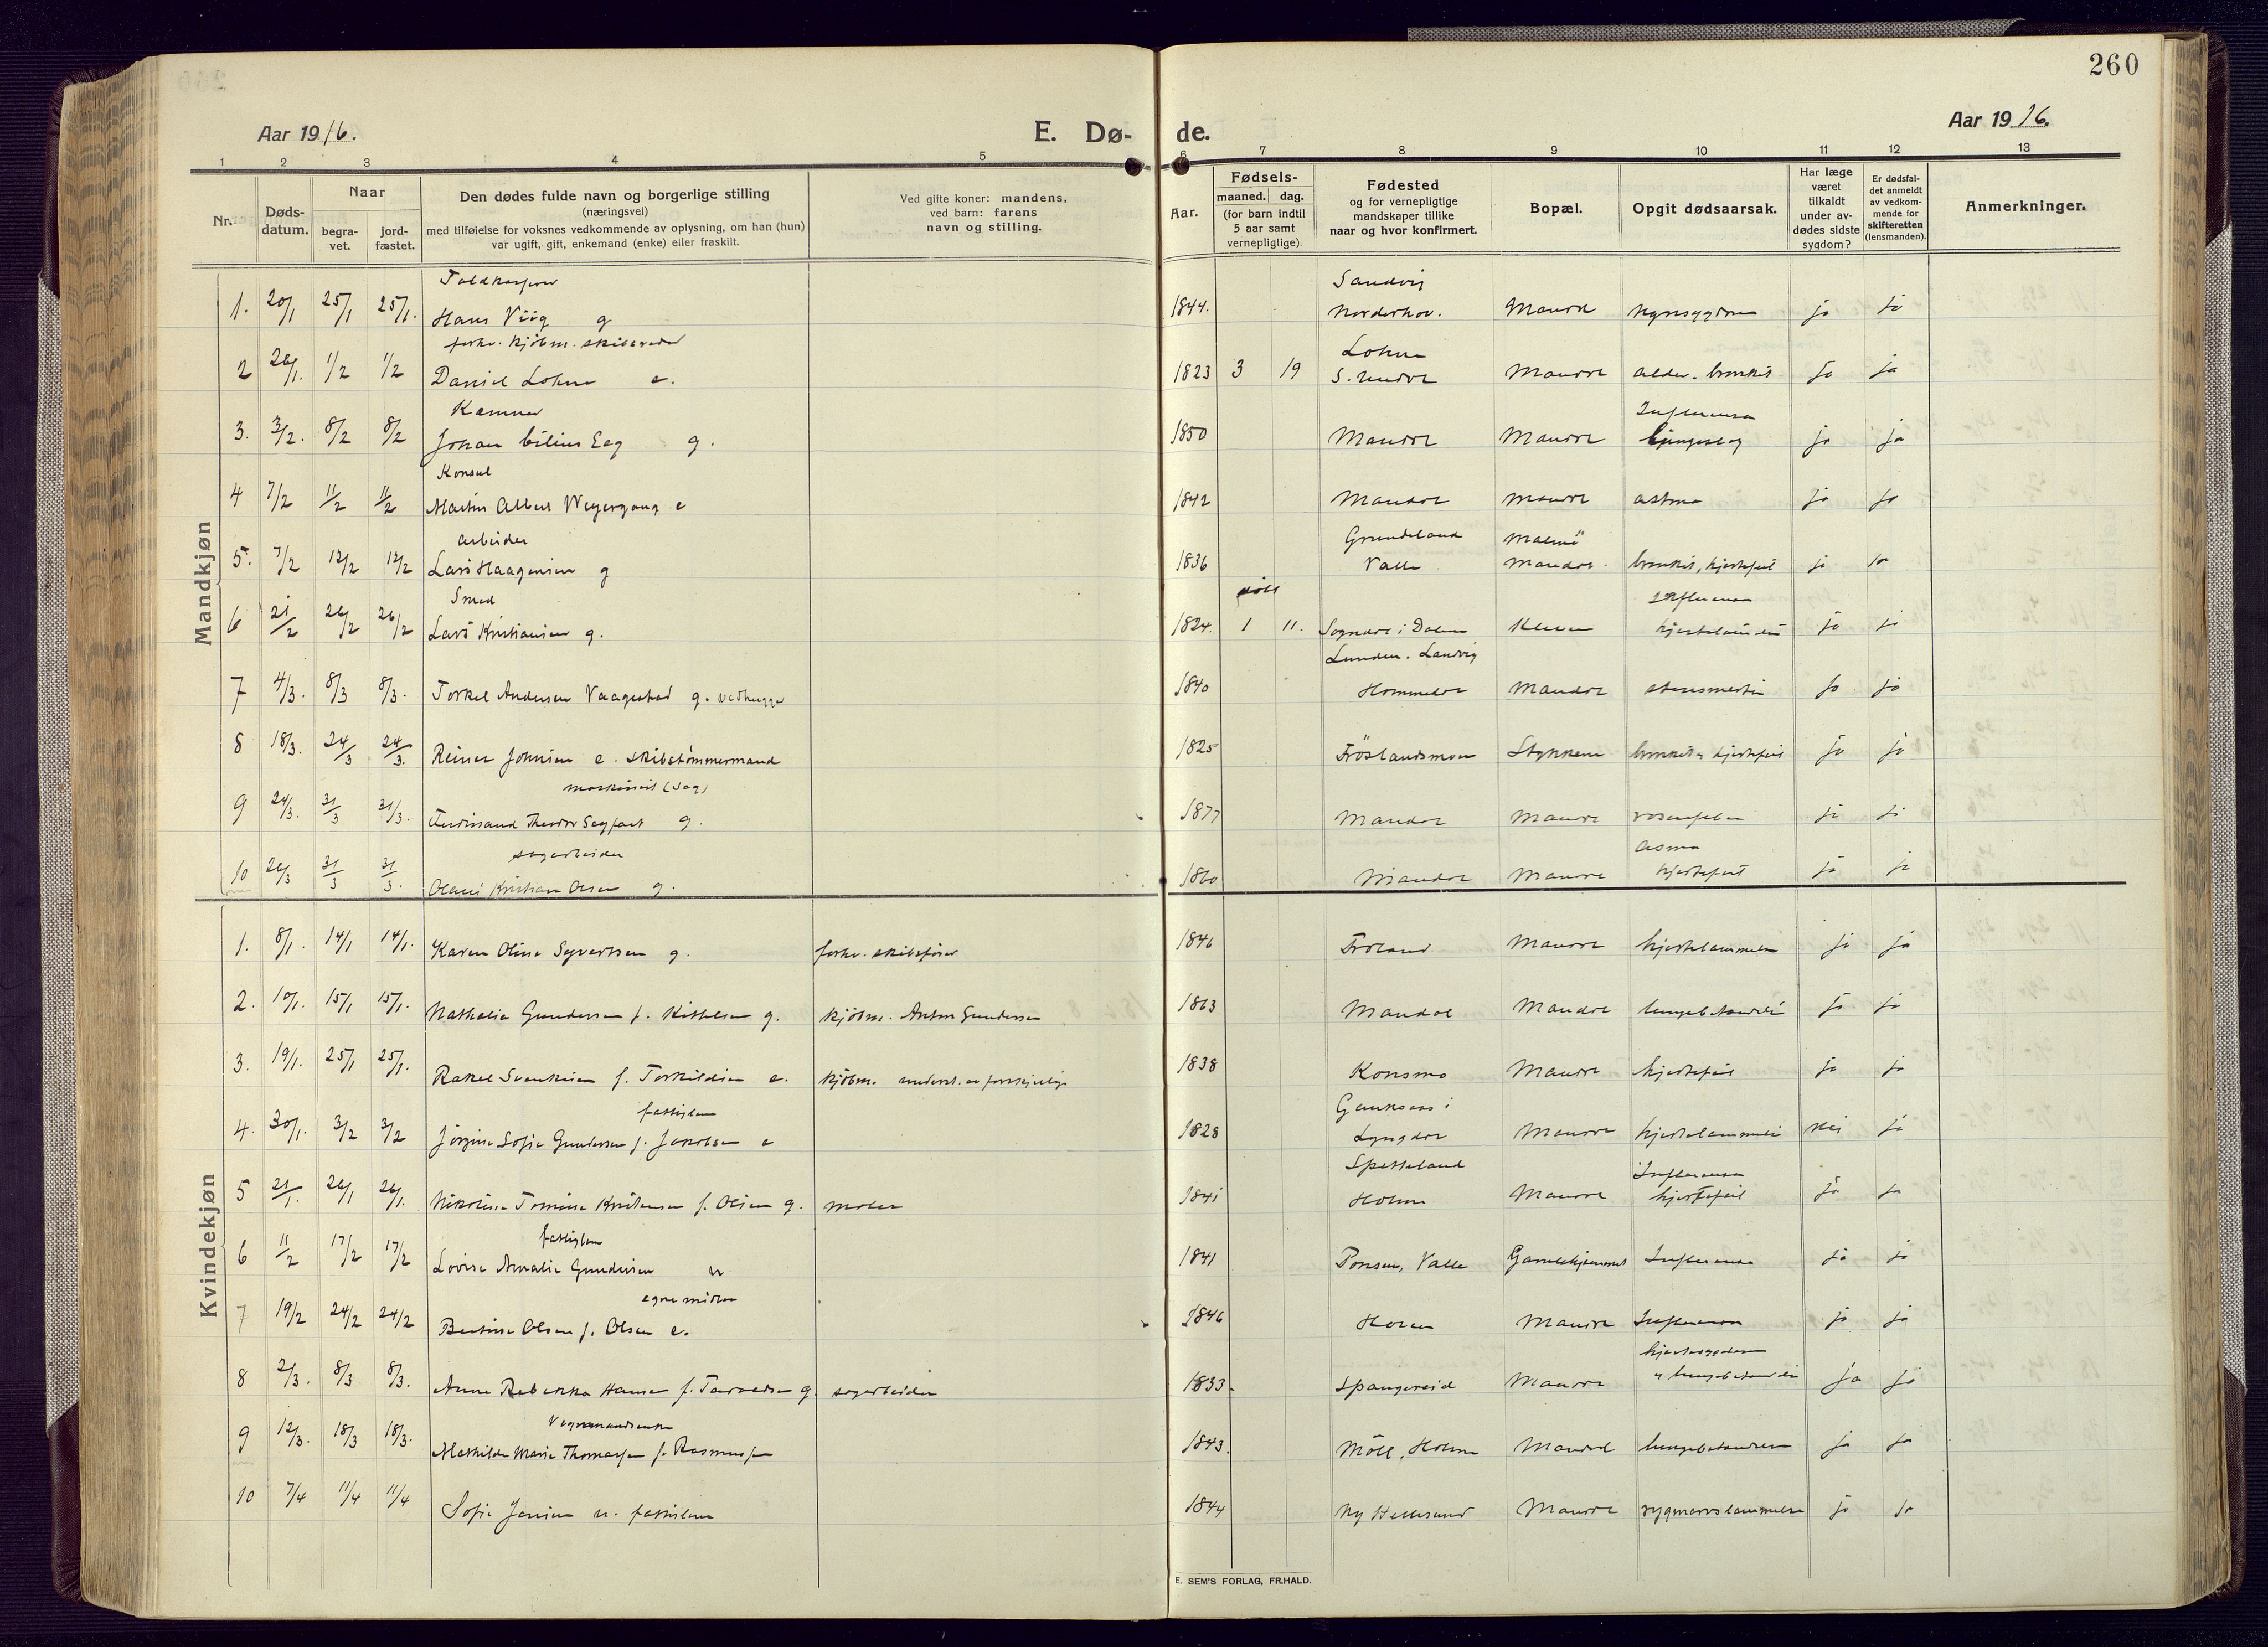 260
Aar 1916.
E. Dø- de.
Aar 1916.
1 2 3 4 5 6 7 8 9 10 11 12 13
Nr.
Døds-
datum.
Naar
begra-
vet.
jord-
fæstet.
Den dødes fulde navn og borgerlige stilling
(næringsvei)
med tilføielse for voksnes vedkommende av oplysning, om han (hun)
var ugift, gift, enkemand (enke) eller fraskilt.
Ved gifte koner: mandens,
ved barn: farens
navn og stilling.
Aar.
Fødsels-
maaned. dag.
(for barn indtil
5 aar samt
vernepligtige).
Fødested
og for vernepligtige
mandskaper tillike
naar og hvor konfirmert.
Bopæl.
Opgit dødsaarsak.
Har læge
været
tilkaldt
under av-
dødes sidste
sygdom?
Er dødsfal-
det anmeldt
av vedkom-
mende for
skifteretten
(lensmanden).
Anmerkninger.
Mandkjøn
Toldkasserer Sandvig
1. 20/1 25/1 25/1. Hans Viig g 1844. Norderhov. Mandal nyresygdom ja ja
forhv. kjøbm. skibsreder Lohne
2 26/1. 1/2 1/2 Daniel Lohne e. 1823 3 19 S. Undal Mandal alder. bronkit ja ja
Kæmner Influensa
3. 3/2. 8/2 8/2 Johan Cilius Eeg g. 1850 Mandal Mandal ja ja
Konsul
4 7/2 11/2 11/2 Martin Albert Weyergang e 1842 Mandal Mandal astma ja ja
arbeider Grundeland Malmö
5. 7/2 12/2 12/2 Lars Haagensen g 1836 Valle Mandal bronkit, hjertefeil ja ja
Smed Influensa
6 21/2 26/2 26/2 Lars Kristiansen g. 1824. 1 11. Sogndal i Dalene Kleven ja ja
Lunden. Landvig
7 4/3. 8/3 8/3. Torkel Andersen Vaagestad g. vedhugger 1840 Hommedal Mandal ja ja
8 18/3. 24/3 24/3. Reiner Johnsen e. skibstømmermand 1825 Fröslandsmoen Stokken bronkit og hjertefeil ja ja
maskinist (sag)
9 24/3. 31/3 31/3. Ferdinand Theodor Segfart g. 1877 Mandal Mandal rosenfeber ja ja
sagarbeider asma
10 26/3 31/3 31/3. Olaus Kristian Olsen g. 1860 Mandal Mandal hjertefeil ja ja
Kvindekjøn
1. 8/1. 14/1 14/1. Karen Oline Syvertsen g. forhv. skibsfører 1846 Froland Mandal hjertelammelse ja ja
2. 10/1. 15/1 15/1. Nathalie Gundersen f. Kittelsen g. kjøbm. Anton Gundersen 1863 Mandal Mandal lungebetændelse ja ja
3. 19/1. 25/1 25/1. Rakel Svenksen f. Torkildsen e. kjøbm. underst. av forskjellige 1838 Konsmo Mandal hjertefeil ja ja
fattiglem Gauksaas i
4. 30/1. 3/2 3/2 Jørgine Sofie Gundersen f. Jakobsen e 1828 Lyngdal Mandal hjertelammelse nei ja
Spetteland Influensa
5 21/1. 26/1 26/1. Nikoline Tomine Kristensen f. Olsen g. maler 1841 Holme Mandal hjertefeil ja ja
fattiglem
6 11/2 17/2 17/2 Lovise Amalie Gundersen u. 1841 Ponsen, Valle Gamlehjemmet Influensa ja ja
egne midler
7 19/2 24/2 24/2 Bertine Olsen f. Olsen e. 1846 Mandal Influensa ja ja
hjertesygdom
8 2/3. 8/3 8/3. Anne Rebekka Hansen f. Tarvedsen g. sagarbeider 1833. Spangereid Mandal og lungebetændelse ja ja
Vognmandsenke
9 12/3. 18/3 18/3. Mathilde Marie Thomassen f. Rasmussen 1843. Möll, Holme Mandal lungebetændelse ja ja
10 7/4 11/4 11/4 Sofie Jensen u. fattiglem 1844 Ny Hellesund Mandal rygmarvslammelse ja ja
E. SEM'S FORLAG, FR.HALD.